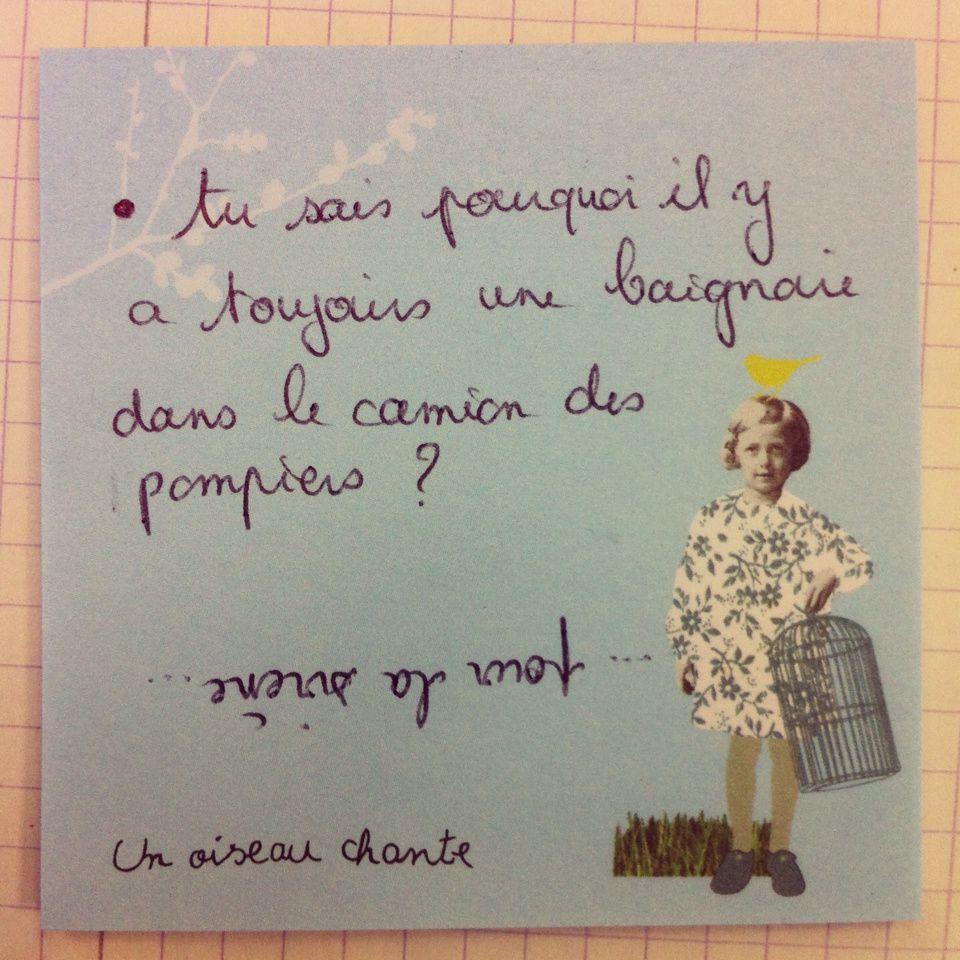 • tu sais pourquoi il y
a toujours une baignoire
dans le camion des
pompiers ?
... pour la sirène ...
Un oiseau chante